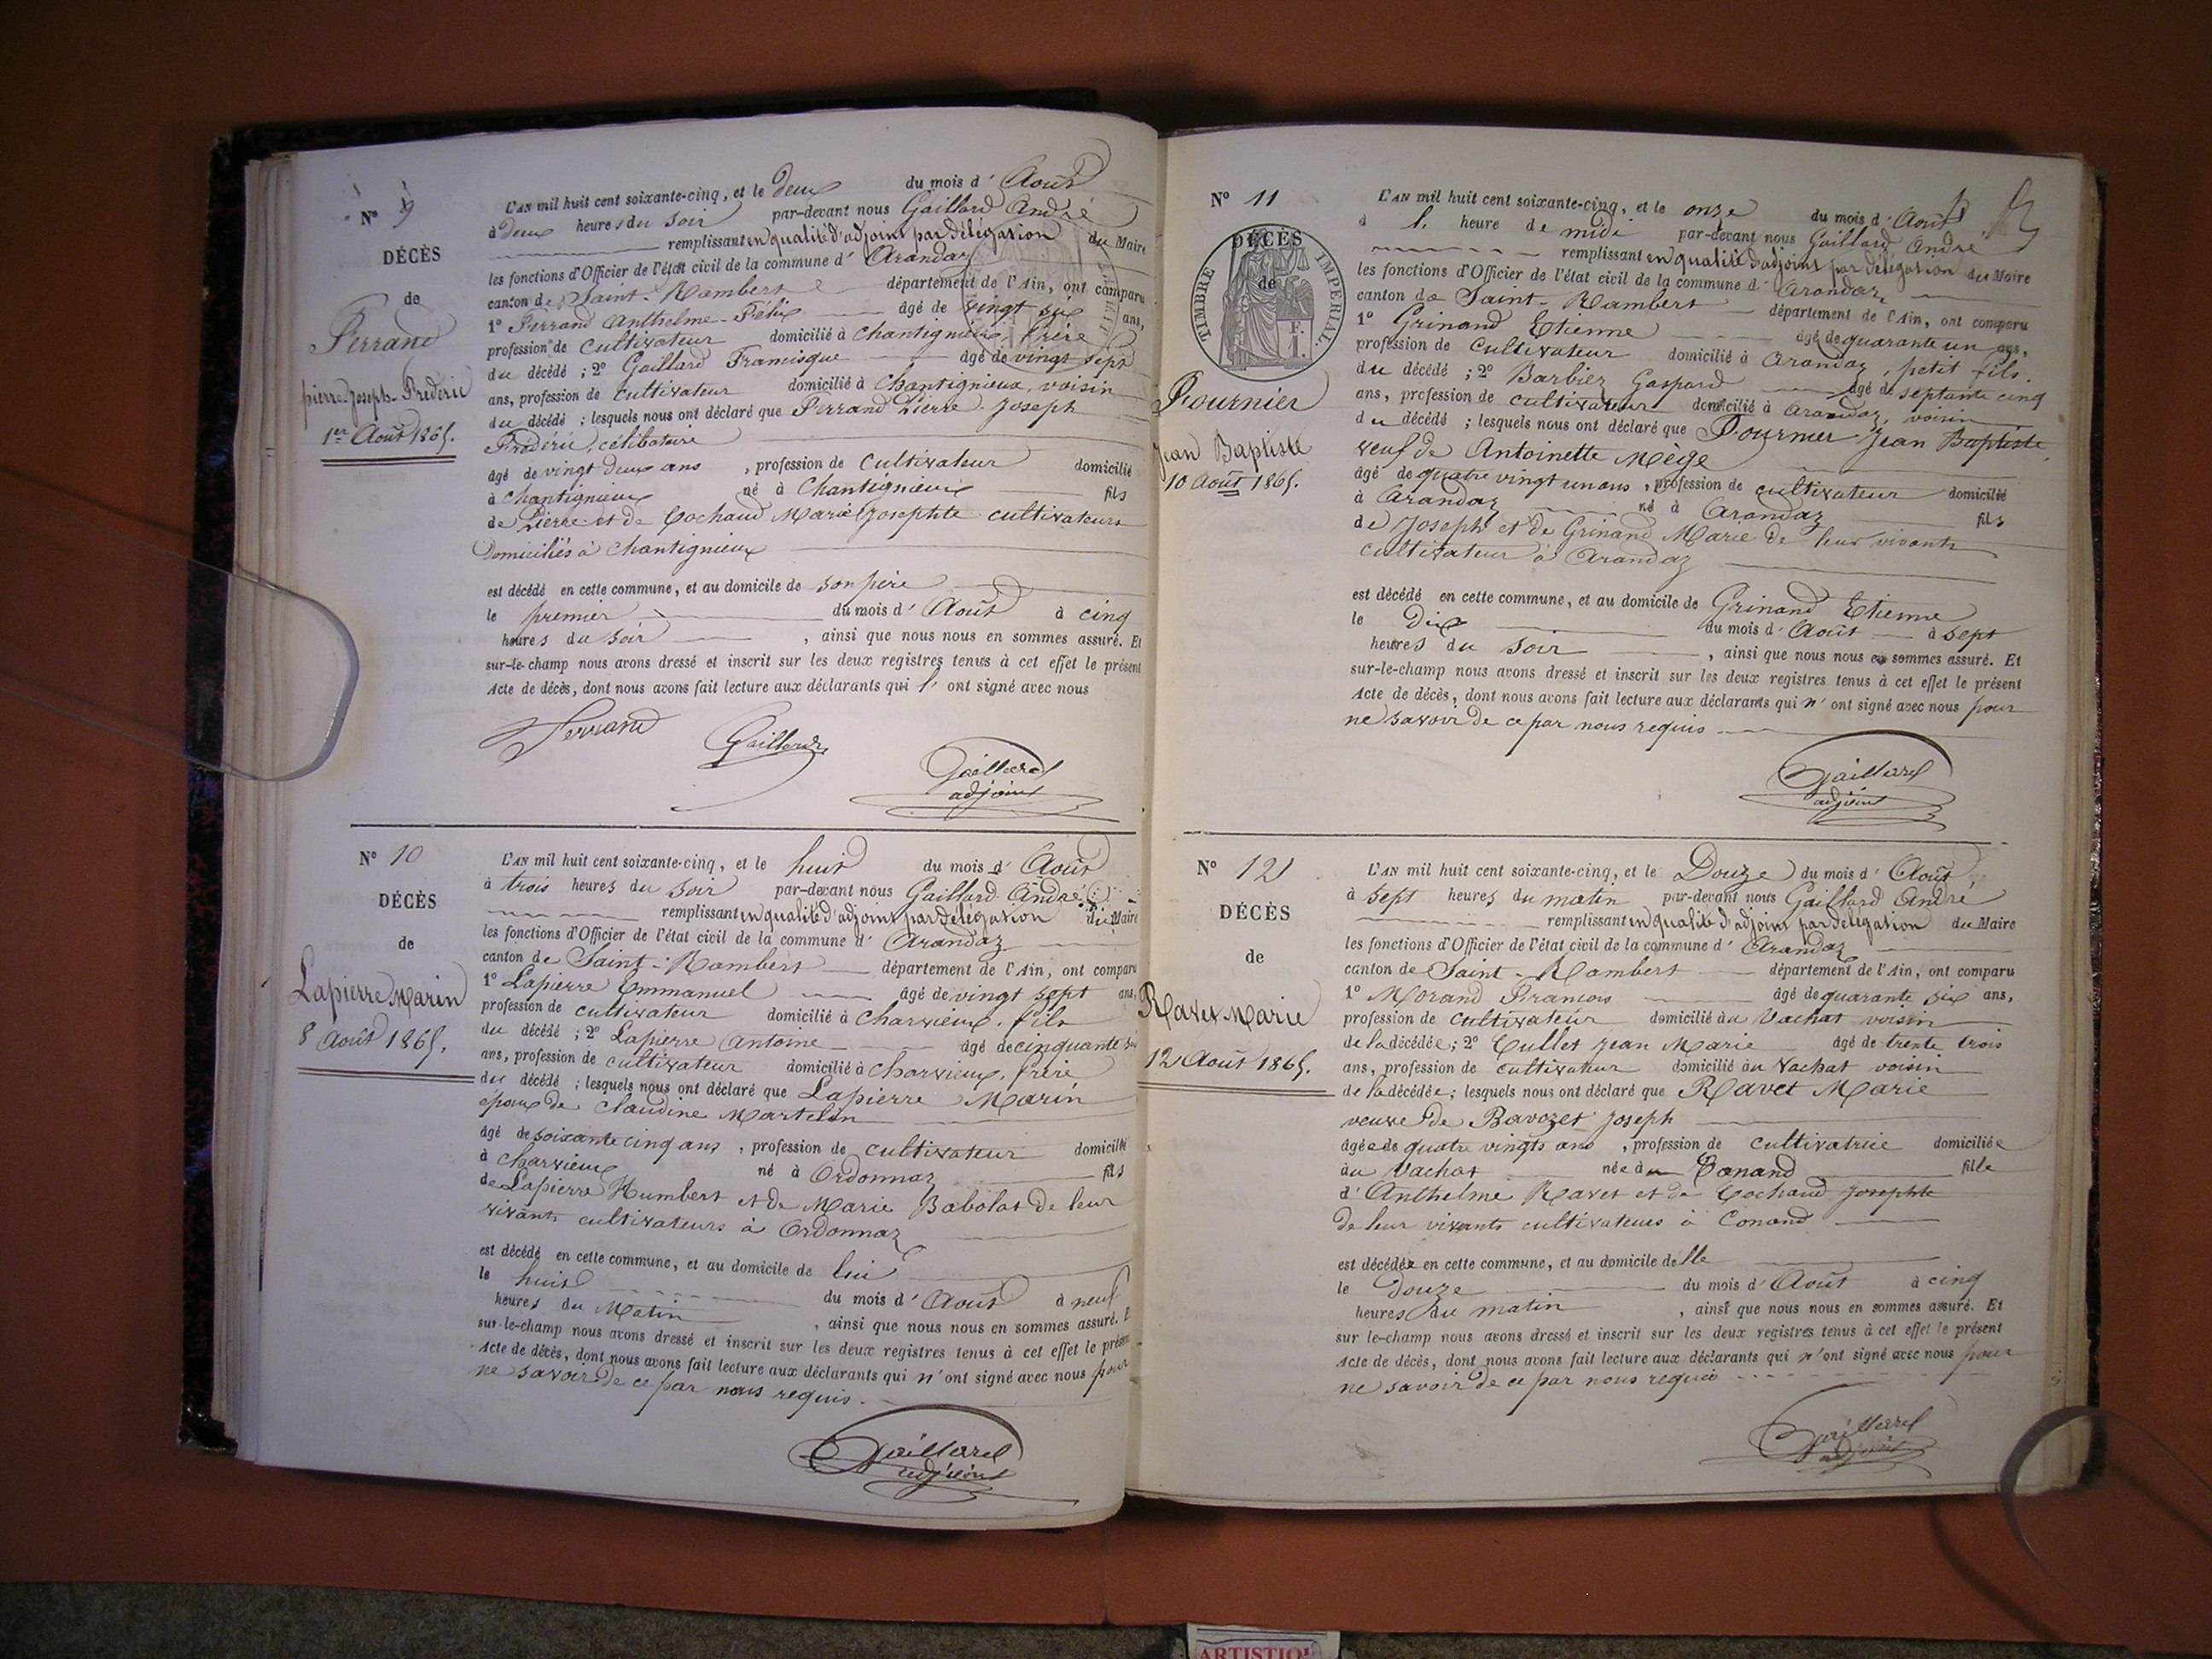 N° 9
DÉCÈS
de
Ferrand
pierre-Joseph-Frédéric
1er Août 1865.
L'AN mil huit cent soixante-cinq, et le deux du mois d'Août
à deux heures du soir par-devant nous Gaillard André
remplissant en qualité d'adjoint par délégation du Maire
les fonctions d'Officier de l'état civil de la commune d'Arandaz
canton de Saint-Rambert département de l'Ain, ont comparu
1° Ferrand Anthelme-Félix âgé de vingt six ans,
profession de cultivateur domicilié à Chantignieux, frère
du décédé ; 2° Gaillard Francisque âgé de vingt sept
ans, profession de cultivateur domicilié à Chantignieux, voisin
du décédé ; lesquels nous ont déclaré que Ferrand Pierre-Joseph
Frédéric, célibataire
âgé de vingt deux ans, profession de cultivateur domicilié
à Chantignieux né à Chantignieux fils
de Pierre et de Cochaud Marie Josephte cultivateurs
Domiciliés à Chantignieux
est décédé en cette commune, et au domicile de son père
le premier du mois d'Août à cinq
heures du soir, ainsi que nous nous en sommes assuré. Et
sur-le-champ nous avons dressé et inscrit sur les deux registres tenus à cet effet le présent
Acte de décès, dont nous avons fait lecture aux déclarants qui l'ont signé avec nous
Ferrand Gaillard
Gaillard
adjoint
N° 10
DÉCÈS
de
Lapierre Marin
8 Août 1865.
L'AN mil huit cent soixante-cinq, et le huit du mois d'Août
à trois heures du soir par-devant nous Gaillard André
remplissant en qualité d'adjoint par délégation du Maire
les fonctions d'Officier de l'état civil de la commune d'Arandaz
canton de Saint-Rambert département de l'Ain, ont comparu
1° Lapierre Emmanuel âgé de vingt sept ans,
profession de cultivateur domicilié à Charvieux, fils
du décédé ; 2° Lapierre Antoine âgé de cinquante
ans, profession de cultivateur domicilié à Charvieux, frère
du décédé ; lesquels nous ont déclaré que Lapierre Marin
époux de Claudine Martelin
âgé de soixante cinq ans, profession de cultivateur domicilié
à Charvieux né à Ordonnaz fils
de Lapierre Humbert et de Marie Babolat de leur
vivants cultivateurs à Ordonnaz
est décédé en cette commune, et au domicile de lui
le huit du mois d'Août à neuf
heures du Matin, ainsi que nous nous en sommes assuré. E
sur-le-champ nous avons dressé et inscrit sur les deux registres tenus à cet effet le présent
Acte de décès, dont nous avons fait lecture aux déclarants qui n'ont signé avec nous pour
ne savoir de ce par nous requis.
Gaillard
adjoint
N° 11
DÉCÈS
de
TIMBRE IMPERIAL.
1 F.
Fournier
Jean Baptiste
10 Août 1865.
L'AN mil huit cent soixante-cinq, et le onze du mois d'Août
à l' heure de midi par-devant nous Gaillard André
remplissant en qualité d'adjoint par délégation du Maire
les fonctions d'Officier de l'état civil de la commune d'Arandaz
canton de Saint-Rambert département de l'Ain, ont comparu
1° Grinand Etienne âgé de quarante un ans,
profession de cultivateur domicilié à Arandaz, petit fils
du décédé ; 2° Barbier Gaspard âgé de septante cinq
ans, profession de cultivateur domicilié à Arandaz, voisin
du décédé ; lesquels nous ont déclaré que Fournier Jean Baptiste
veuf de Antoinette Mège
âgé de quatre vingt un ans, profession de cultivateur domicilié
à Arandaz né à Arandaz fils
de Joseph et de Grinand Marie de leur vivants
cultivateur à Arandaz
est décédé en cette commune, et au domicile de Grinand Etienne
le Dix du mois d'Août à sept
heures du soir, ainsi que nous nous en sommes assuré. Et
sur-le-champ nous avons dressé et inscrit sur les deux registres tenus à cet effet le présent
Acte de décès, dont nous avons fait lecture aux déclarants qui n'ont signé avec nous pour
ne savoir de ce par nous requis
Gaillard
adjoint
N° 12
DÉCÈS
de
Ravet Marie
12 Août 1865.
L'AN mil huit cent soixante-cinq, et le Douze du mois d'Août
à sept heures du matin par-devant nous Gaillard André
remplissant en qualité d'adjoint par délégation du Maire
les fonctions d'Officier de l'état civil de la commune d'Arandaz
canton de Saint-Rambert département de l'Ain, ont comparu
1° Morand François âgé de quarante six ans,
profession de cultivateur domicilié au Vachat voisin
de la décédée ; 2° Cullet Jean Marie âgé de trente trois
ans, profession de cultivateur domicilié au Vachat voisin
de la décédée ; lesquels nous ont déclaré que Ravet Marie
veuve de Bavozet Joseph
âgée de quatre vingts ans, profession de cultivatrice domiciliée
au Vachat née à Conand fille
d'Anthelme Ravet et de Cochaud Josephte
de leur vivants cultivateurs à Conand
est décédée en cette commune, et au domicile d'elle
le douze du mois d'Août à cinq
heures du matin, ainsi que nous nous en sommes assuré. Et
sur le-champ nous avons dressé et inscrit sur les deux registres tenus à cet effet le présent
Acte de décès, dont nous avons fait lecture aux déclarants qui n'ont signé avec nous pour
ne savoir de ce par nous requis
Gaillard
adjoint
ARTISTIQ